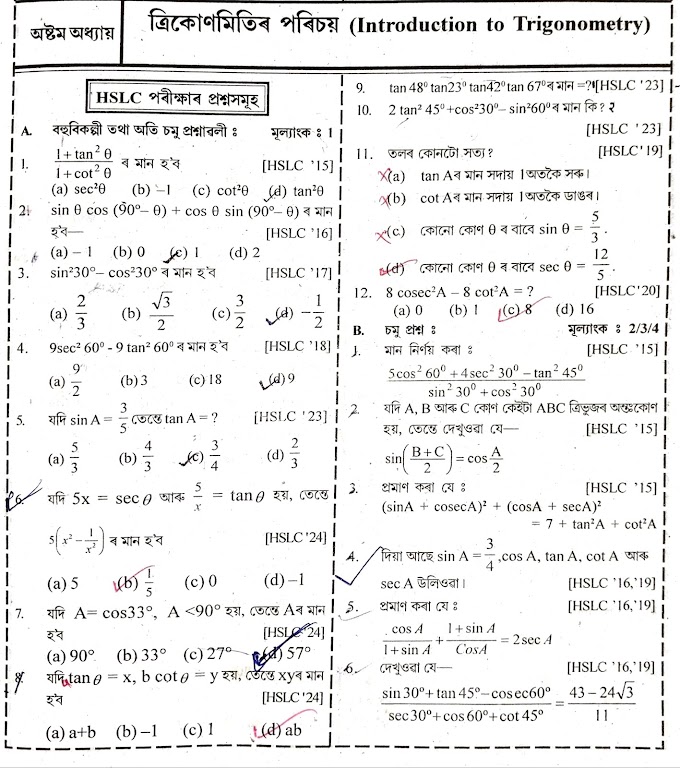 অষ্টম অধ্যায়
ত্ৰিকোণমিতিৰ পৰিচয় (Introduction to Trigonometry)
HSLC পৰীক্ষাৰ প্ৰশ্নসমূহ
A. বহুবিকল্পী তথা অতি চমু প্ৰশ্নাৱলী : মূল্যাংক : 1
1. (1 + tan²θ)/(1 + cot²θ) ৰ মান হ'ব [HSLC '15]
(a) sec²θ (b) –1 (c) cot²θ (d) tan²θ
2. sin θ cos (90°– θ) + cos θ sin (90°– θ) ৰ মান
হ'ব— [HSLC '16]
(a) – 1 (b) 0 (c) 1 (d) 2
3. sin²30°– cos²30° ৰ মান হ'ব [HSLC '17]
(a) 2/3 (b) √3/2 (c) 3/2 (d) –1/2
4. 9sec² 60° - 9 tan² 60° ৰ মান হ'ব [HSLC '18]
(a) 9/2 (b) 3 (c) 18 (d) 9
5. যদি sin A = 3/5 তেন্তে tan A = ? [HSLC '23]
(a) 5/3 (b) 4/3 (c) 3/4 (d) 2/3
6. যদি 5x = sec θ আৰু 5/x = tan θ হয়, তেন্তে
5(x² – 1/x²) ৰ মান হ'ব [HSLC '24]
(a) 5 (b) 1/5 (c) 0 (d) –1
7. যদি A= cos33°, A <90° হয়, তেন্তে Aৰ মান
হ'ব [HSLC '24]
(a) 90° (b) 33° (c) 27° (d) 57°
8. যদি a tan θ = x, b cot θ = y হয়, তেন্তে xyৰ মান
হ'ব [HSLC '24]
(a) a+b (b) –1 (c) 1 (d) ab
9. tan 48° tan23° tan42° tan 67° ৰ মান =? 1 [HSLC '23]
10. 2 tan² 45° +cos²30° – sin²60° ৰ মান কি? 2
[HSLC '23]
11. তলৰ কোনটো সত্য? [HSLC'19]
(a) tan Aৰ মান সদায় 1অতকৈ সৰু।
(b) cot Aৰ মান সদায় 1অতকৈ ডাঙৰ।
(c) কোনো কোণ θ ৰ বাবে sin θ = 5/3 .
(d) কোনো কোণ θ ৰ বাবে sec θ = 12/5 .
12. 8 cosec²A – 8 cot²A = ? [HSLC'20]
(a) 0 (b) 1 (c) 8 (d) 16
B. চমু প্ৰশ্ন : মূল্যাংক : 2/3/4
1. মান নিৰ্ণয় কৰা : [HSLC '15]
(5cos² 60° + 4sec² 30° – tan² 45°)/(sin² 30° + cos² 30°)
2. যদি A, B আৰু C কোণ কেইটা ABC ত্ৰিভুজৰ অন্তঃকোণ
হয়, তেন্তে দেখুওৱা যে— [HSLC '15]
sin((B + C)/2) = cos A/2
3. প্ৰমাণ কৰা যে : [HSLC '15]
(sinA + cosecA)² + (cosA + secA)²
= 7 + tan²A + cot²A
4. দিয়া আছে sin A = 3/4 ,cos A, tan A, cot A আৰু
sec A উলিওৱা। [HSLC '16,'19]
5. প্ৰমাণ কৰা যে : [HSLC '16,'19]
cos A/(1+ sin A) + (1+ sin A)/CosA = 2sec A
6. দেখুওৱা যে— [HSLC '16,'19]
(sin30° + tan 45° – cosec60°)/(sec30° + cos 60° + cot 45°) = (43 – 24√3)/11